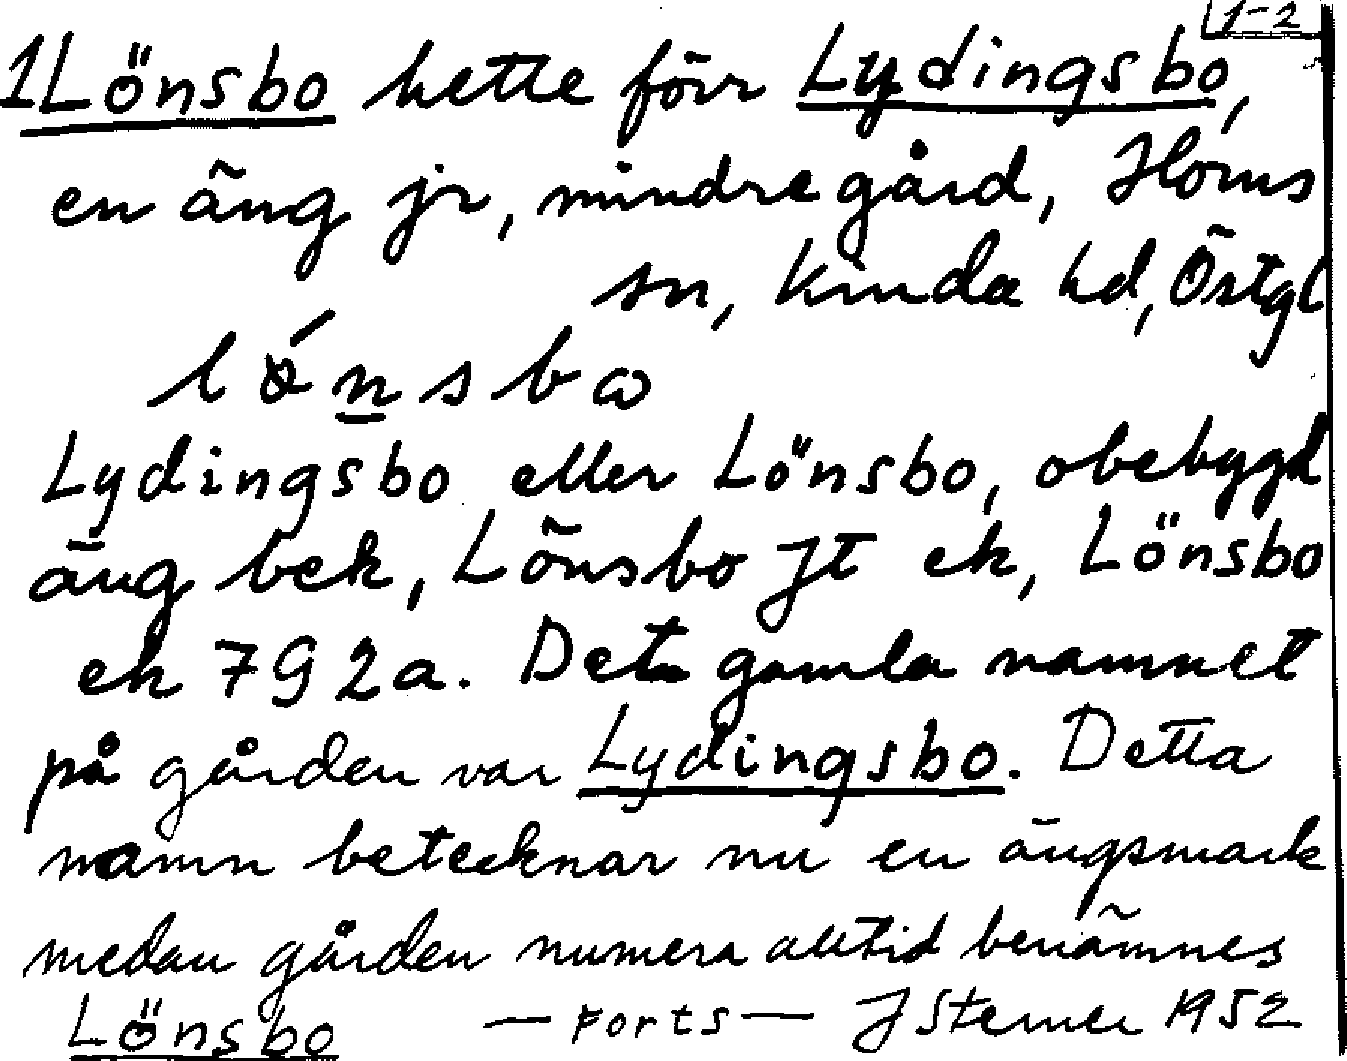 1-2
1 Lönsbo hette förr Lydingsbo,
en äng jr, mindre gård, Horns
sn, Kinda hd, Östgl
lǿnsbω
Lydingsbo eller Lönsbo, obebygd
äng bek, Lönsbo Jt ek, Lönsbo
ek 792a. Det gamla namnet
på gården var Lydingsbo. Detta
namn betecknar nu en ängsmark
medan gården numera alltid benämnes
Lönsbo — Forts — J Sterner 1952